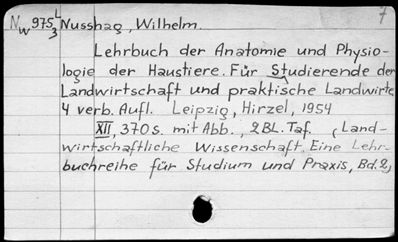 7
Nw 975 L/3 Nusshag, Wilhelm.
Lehrbuch der Anatomie und Physio-
logie der Haustiere. Für Studierende der
Landwirtschaft und praktische Landwirte
4 verb. Aufl. Leipzig, Hirzel, 1954
XII, 370 s. mit Abb., 2 BL. Taf. (Land-
wirtschaftliche Wissenschaft. Eine Lehr-
buchreihe für Studium und Praxis, Bd. 2)